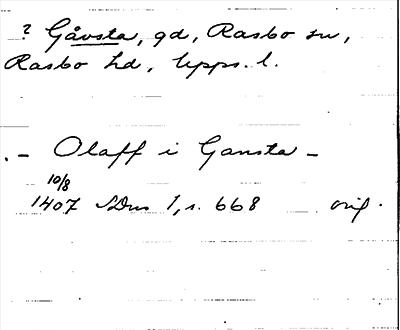 ? Gåvsta, gd, Rasbo sn,
Rasbo hd, Upps. l.
. – Olaff i Gansta –
10/8
1407 SDns 1, s. 668 orig.